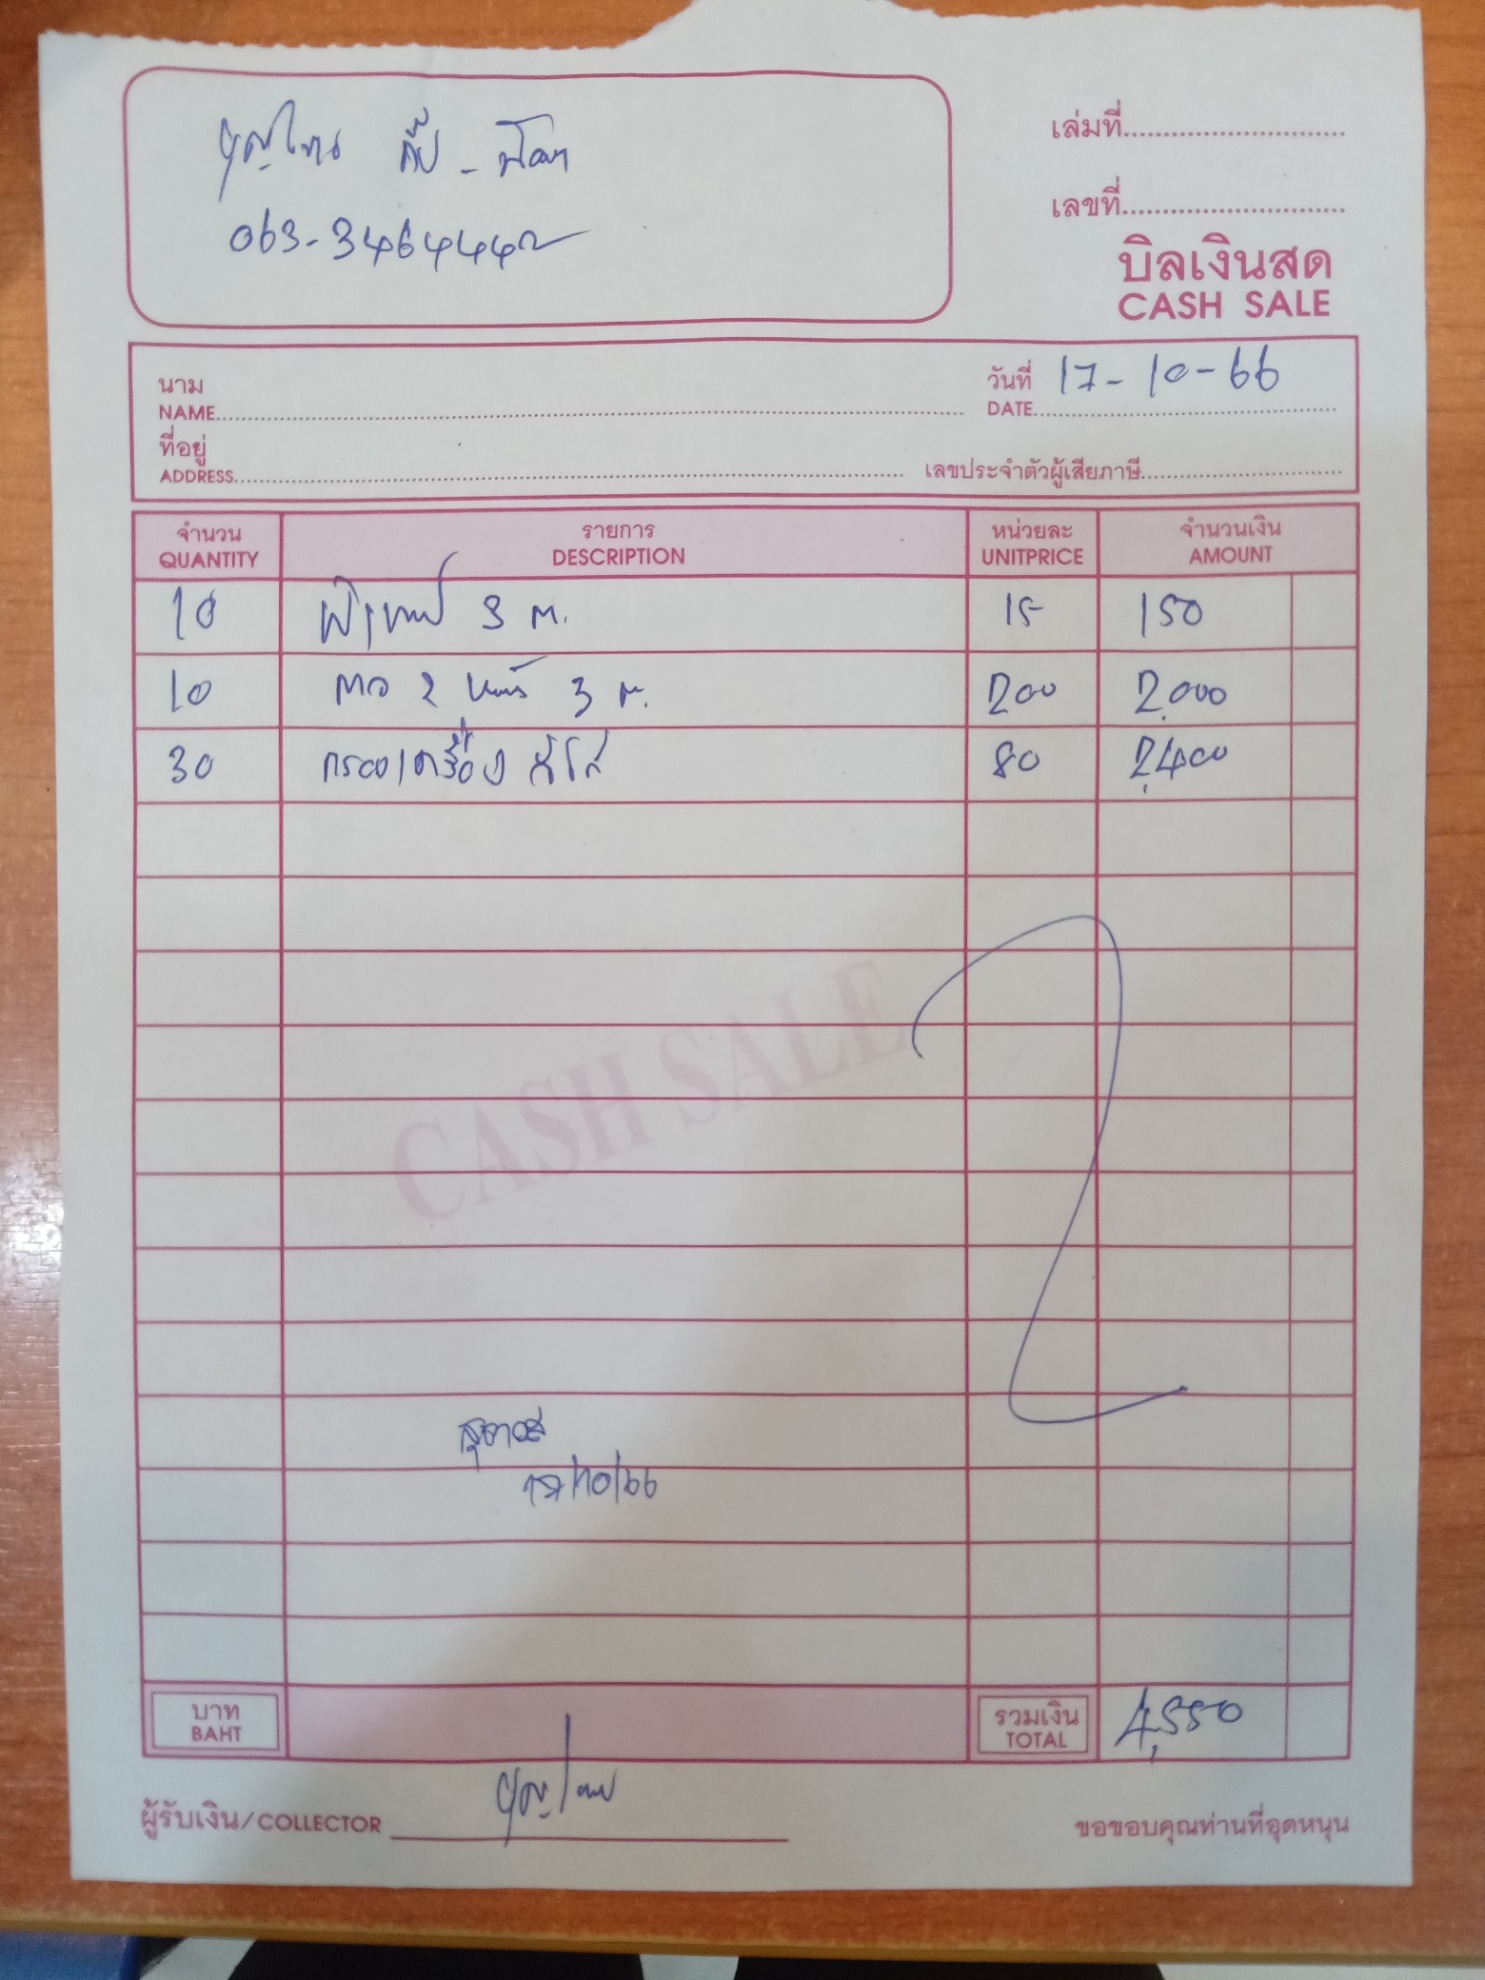 063-3464442
เล่มที่
เลขที่
บิลเงินสด
CASH SALE
นาม
NAME
วันที่ 17-10-66
DATE
ที่อยู่
ADDRESS
เลขประจำตัวผู้เสียภาษี
จำนวน รายการ หน่วยละ จำนวนเงิน
QUANTITY DESCRIPTION UNITPRICE AMOUNT
10 3 ม. 15 150
10 กาว 2 หน้า 3 ม. 200 2,000
30 กรองเครื่อง 80 2,400
CASH SALE
17/10/66
บาท
BAHT
รวมเงิน
TOTAL
4,550
ผู้รับเงิน/COLLECTOR
ขอขอบคุณท่านที่อุดหนุน